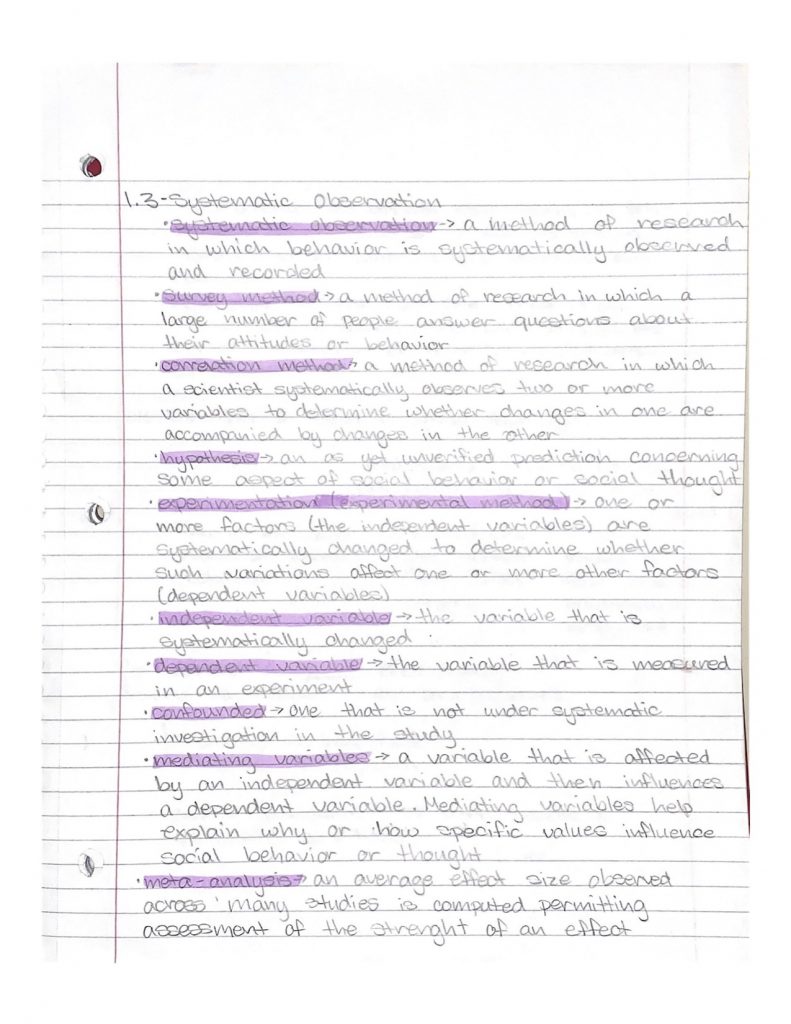 1.3-Systematic Observation
·systematic observation→ a method of research
in which behavior is systematically observed
and recorded
·survey method→ a method of research in which a
large number of people answer questions about
their attitudes or behavior
·correlation method→ a method of research in which
a scientist systematically observes two or more
variables to determine whether changes in one are
accompanied by changes in the other
·hypothesis→ an as yet unverified prediction concerning
some aspect of social behavior or social thought
·experimentation (experimental method)→ one or
more factors (the independent variables) are
systematically changed to determine whether
such variations affect one or more other factors
(dependent variables)
·independent variable→ the variable that is
systematically changed
·dependent variable→ the variable that is measured
in an experiment
·confounded→ one that is not under systematic
investigation in the study
·mediating variables→ a variable that is affected
by an independent variable and then influences
a dependent variable. Mediating variables help
explain why or how specific values influence
social behavior or thought
·meta-analysis→ an average effect size observed
across many studies is computed permitting
assessment of the strenght of an effect